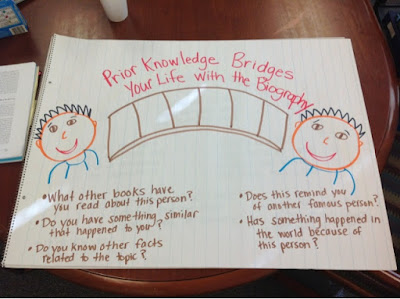 Prior Knowledge Bridges
Your Life with the Biography
• What other books have
you read about this person?
• Do you have something similar
that happened to you?
• Do you know other facts
related to the topic?
• Does this remind you
of another famous person?
• Has something happened in
the world because of
this person?